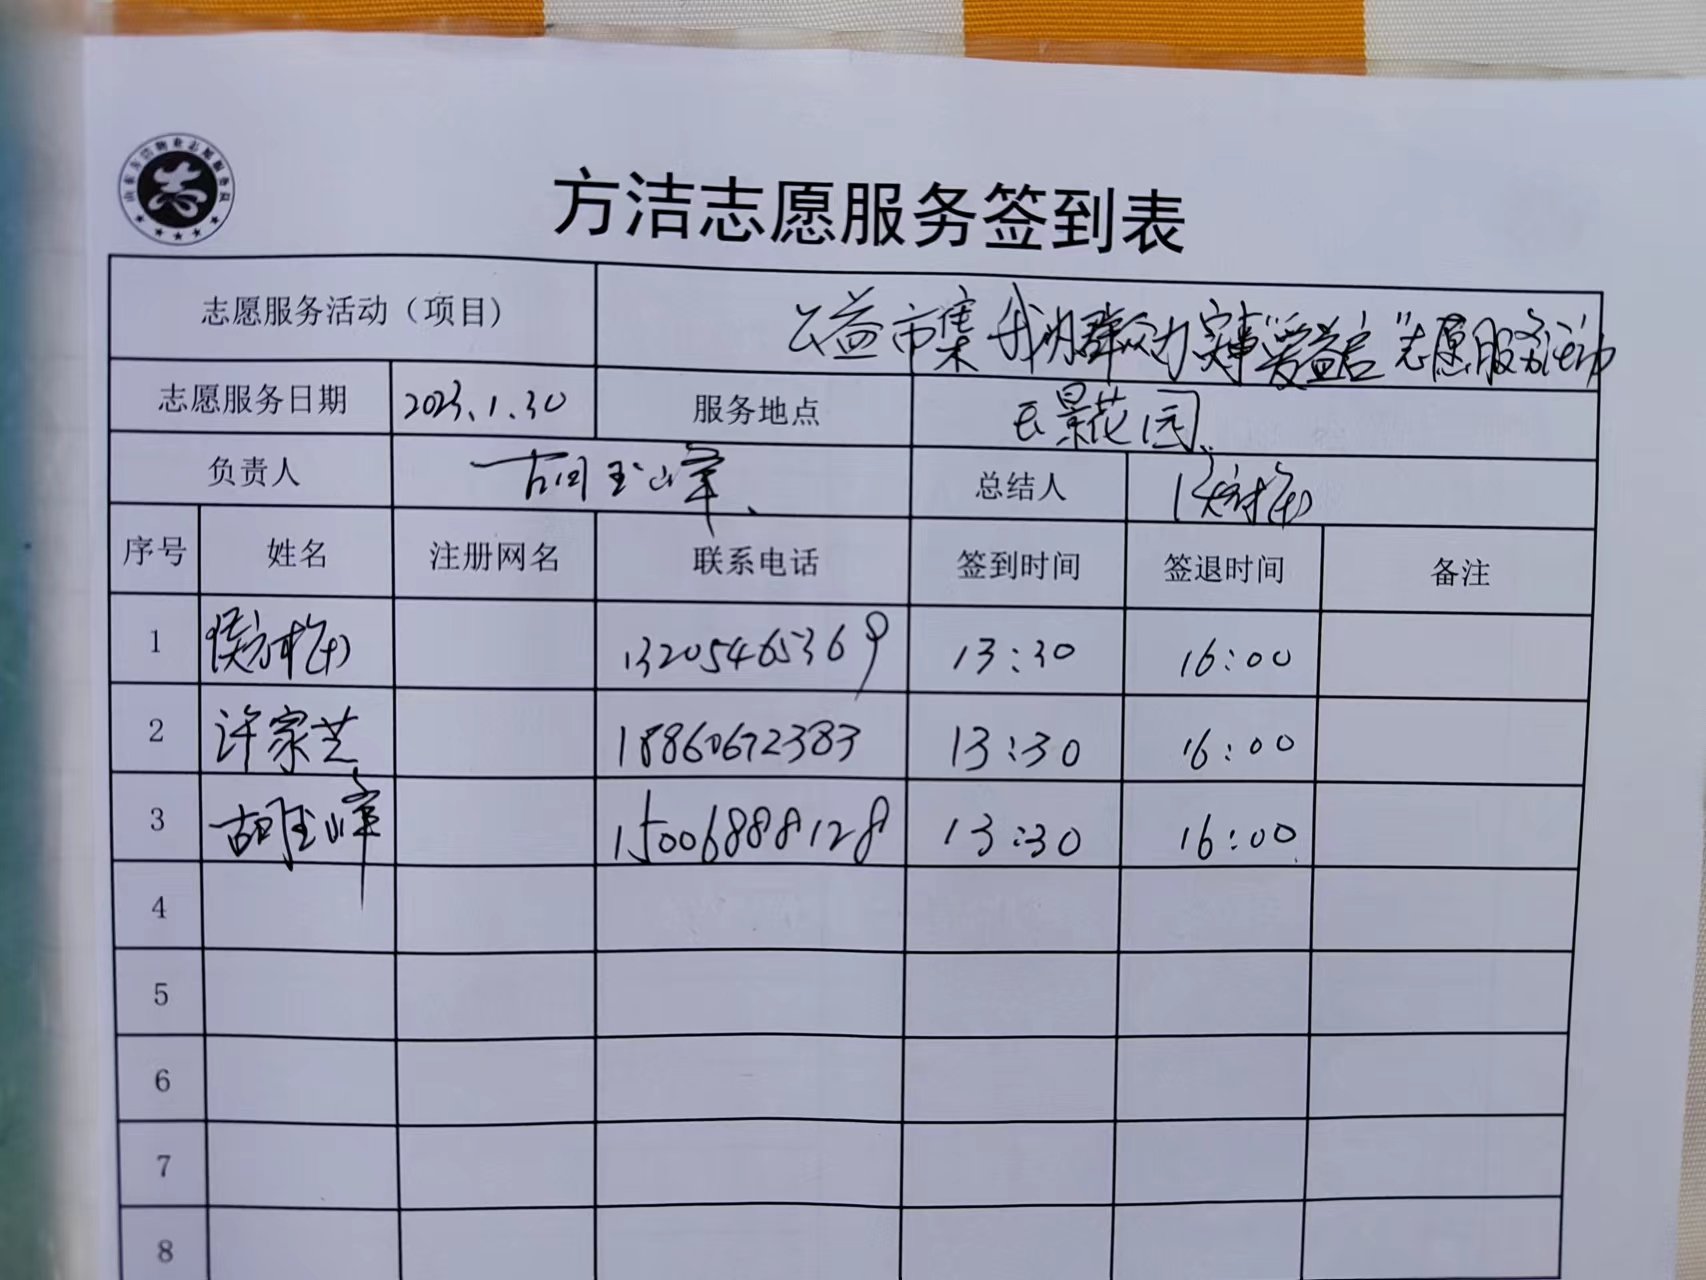 方洁志愿服务签到表
志愿服务活动（项目） 公益市集 我为群众办实事"爱益启"志愿服务活动
志愿服务日期 2023.1.30 服务地点 云景花园
负责人 胡玉峰 总结人
序号 姓名 注册网名 联系电话 签到时间 签退时间 备注
1 13205465369 13:30 16:00
2 许家芝 18860672383 13:30 16:00
3 胡玉峰 15006888128 13:30 16:00
4
5
6
7
8